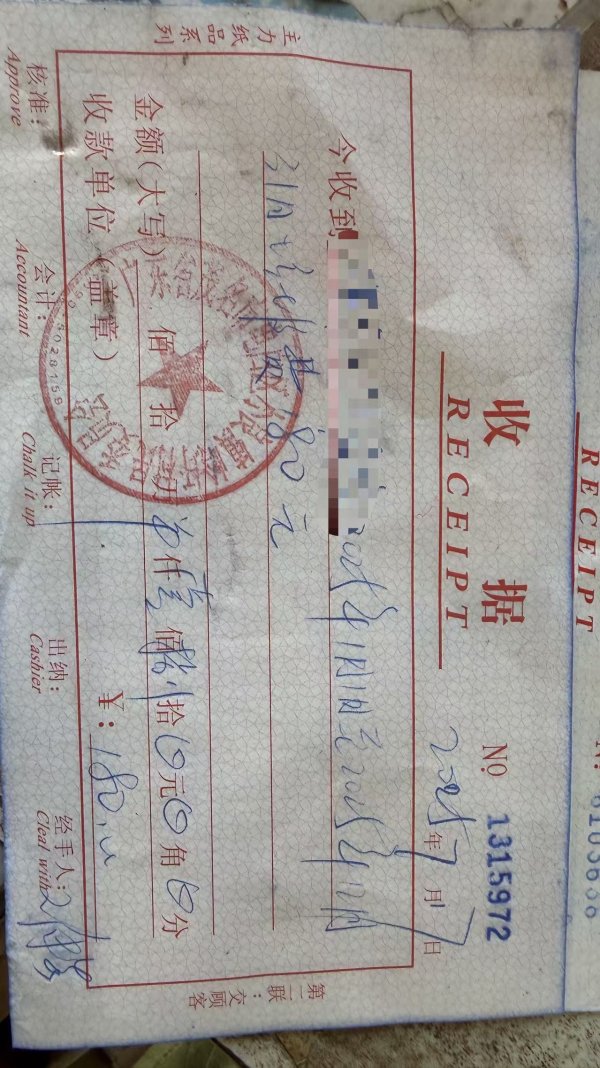 主力纸品系列
收 据
RECEIPT
NO 1315972
2025年7月7日
今收到 2025年1月1日至2025年12月
31日 费180元
金额(大写) 佰 拾 万 仟 壹 佰 捌 拾 0 元 0 角 0 分
收款单位(盖章) ¥: 180.00
核准: 会计: 记帐: 出纳: 经手人:
Approve Accountant Chalk it up Cashier Cleal with
第二联:交顾客
RECEIPT